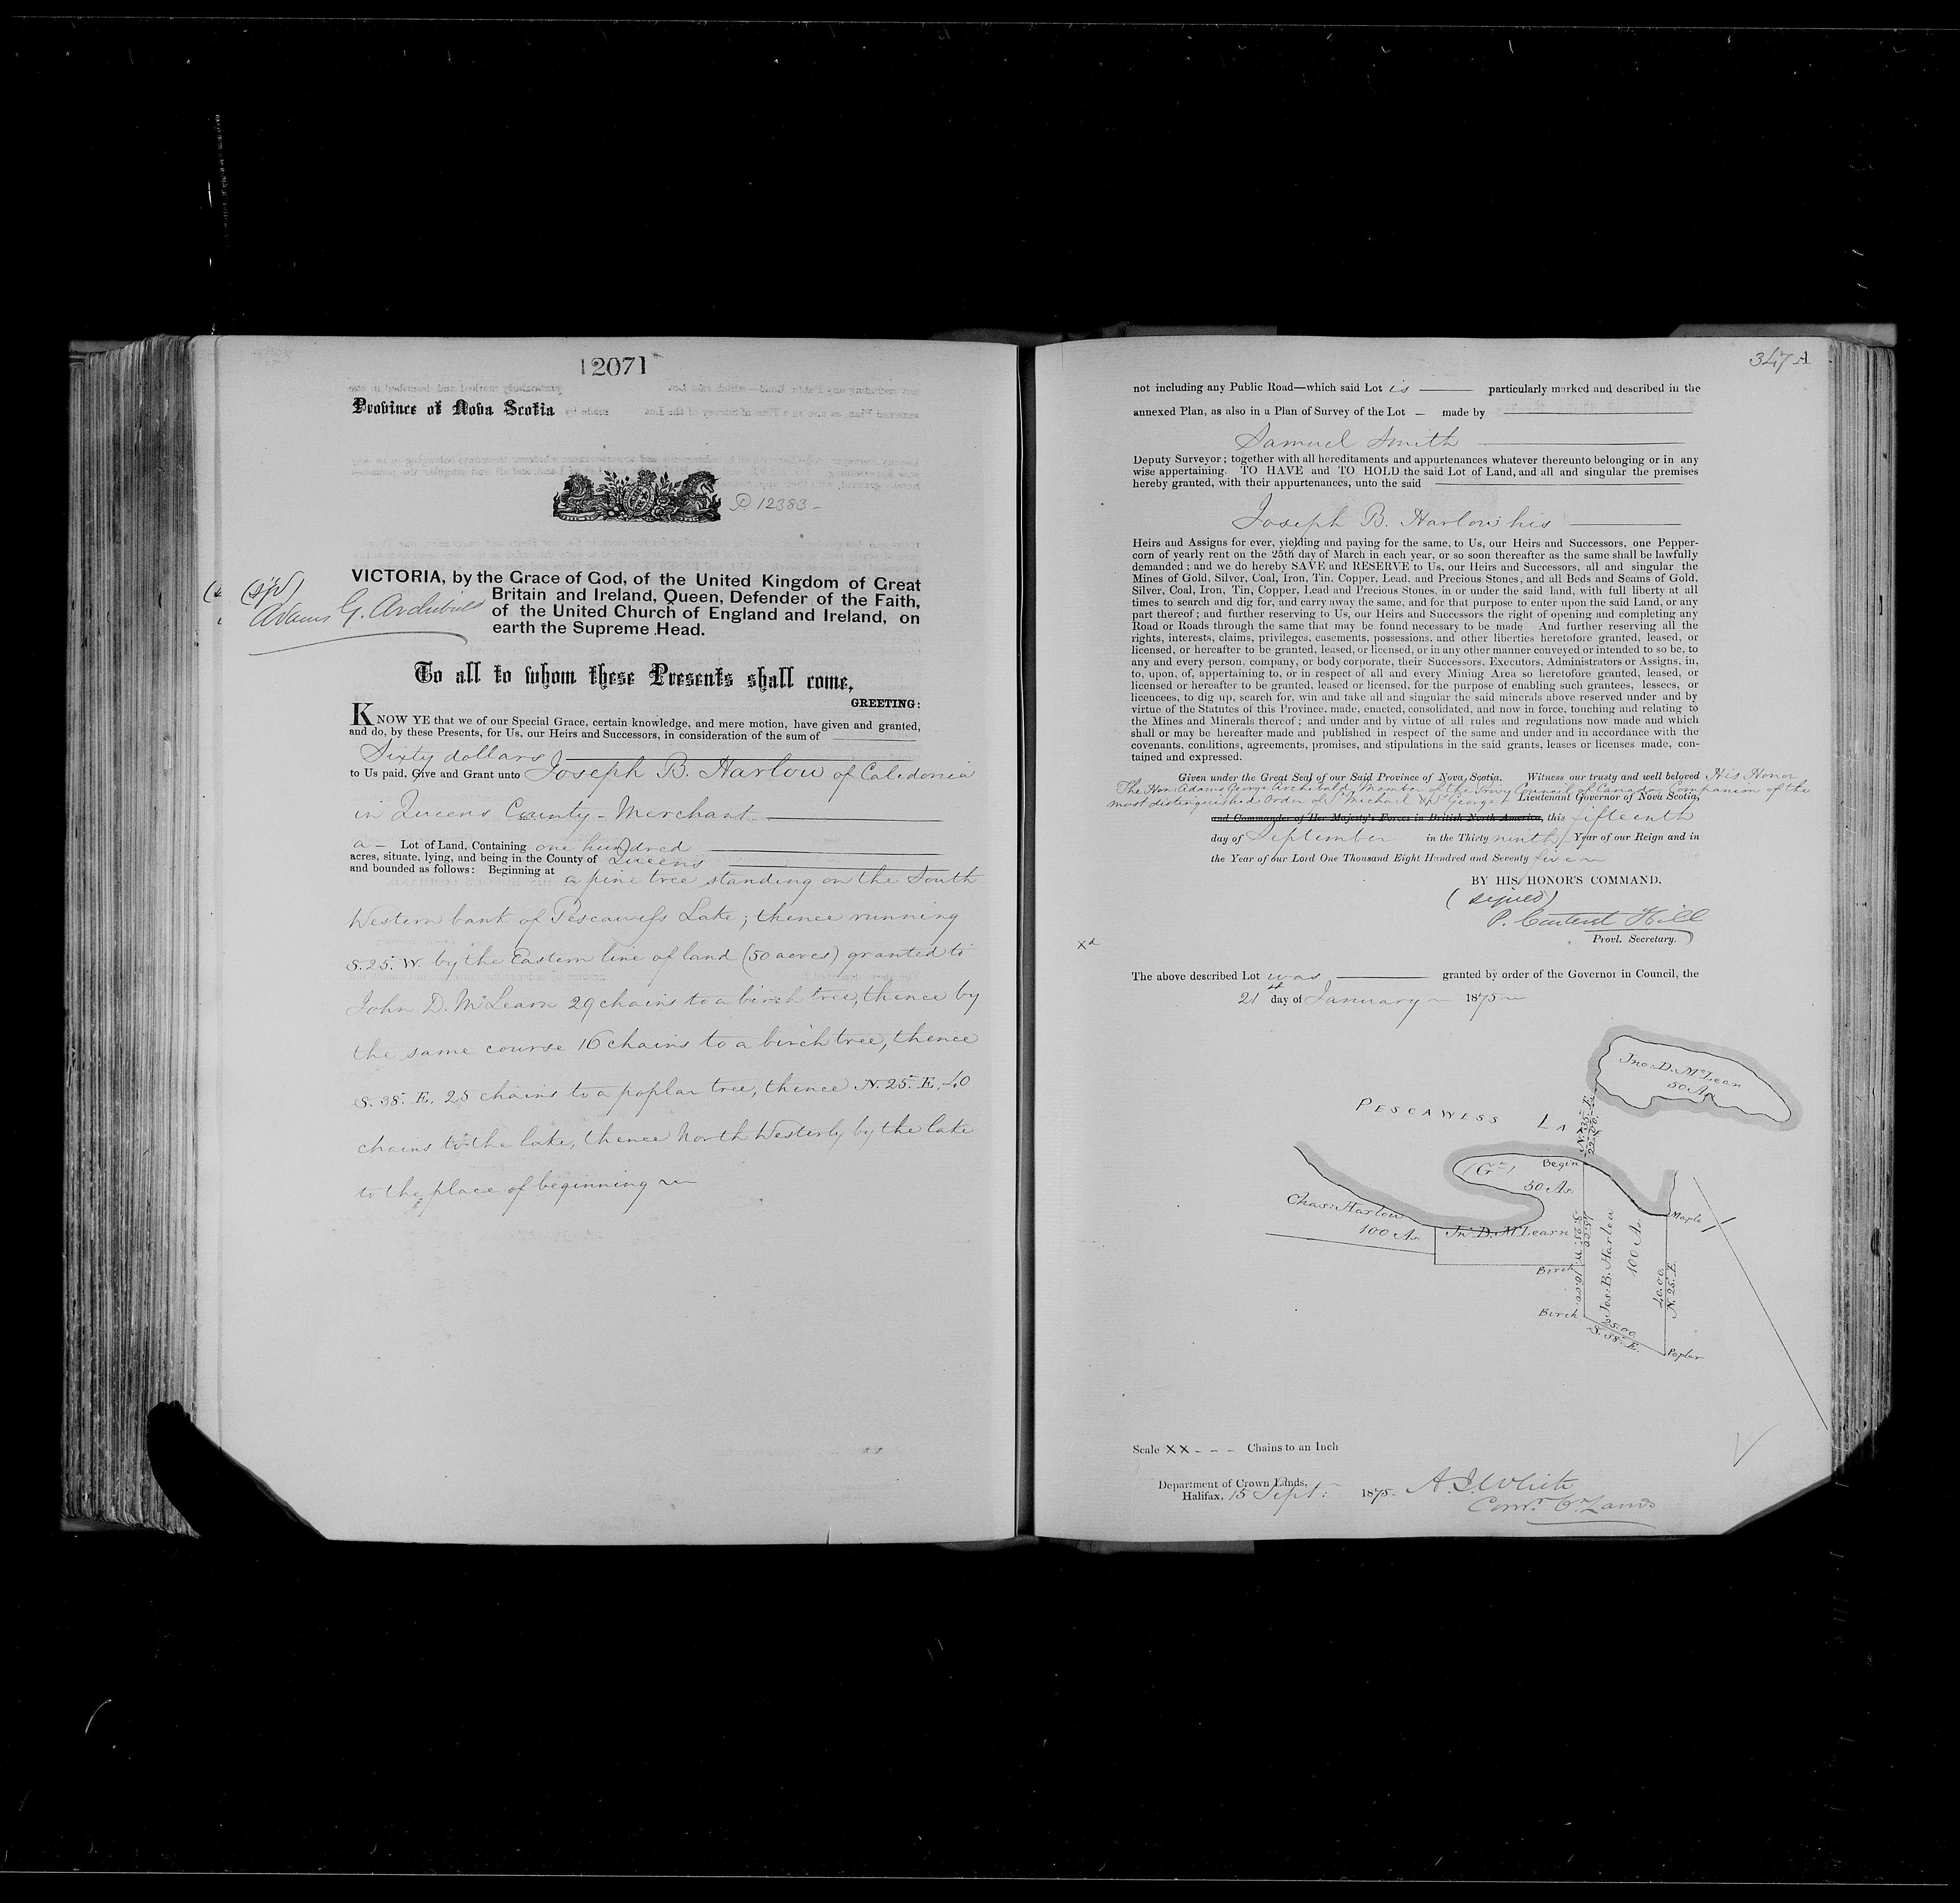 12071
Province of Nova Scotia
P 12383
(sgd)
Adams G. Archibald
VICTORIA, by the Grace of God, of the United Kingdom of Great
Britain and Ireland, Queen, Defender of the Faith,
of the United Church of England and Ireland, on
earth the Supreme Head.
To all to whom these Presents shall come,
GREETING:
KNOW YE that we of our Special Grace, certain knowledge, and mere motion, have given and granted,
and do, by these Presents, for Us, our Heirs and Successors, in consideration of the sum of
Sixty dollars
to Us paid, Give and Grant unto Joseph B. Harlow of Caledonia
in Queens County - Merchant
a - Lot of Land, Containing one hundred
acres, situate, lying, and being in the County of Queens
and bounded as follows: Beginning at a pine tree standing on the South
Western bank of Pescawess Lake; thence running
S. 25° W. by the Eastern line of land (50 acres) granted to
John D. McLearn 29 chains to a birch tree, thence by
the same course 16 chains to a birch tree, thence
S. 38° E. 25 chains to a poplar tree, thence N. 25° E. 40
chains to the lake, thence North Westerly by the lake
to the place of beginning
347 A
not including any Public Road—which said Lot is particularly marked and described in the
annexed Plan, as also in a Plan of Survey of the Lot - made by
Samuel Smith
Deputy Surveyor; together with all hereditaments and appurtenances whatever thereunto belonging or in any
wise appertaining. TO HAVE and TO HOLD the said Lot of Land, and all and singular the premises
hereby granted, with their appurtenances, unto the said
Joseph B. Harlow his
Heirs and Assigns for ever, yielding and paying for the same, to Us, our Heirs and Successors, one Pepper-
corn of yearly rent on the 25th day of March in each year, or so soon thereafter as the same shall be lawfully
demanded; and we do hereby SAVE and RESERVE to Us, our Heirs and Successors, all and singular the
Mines of Gold, Silver, Coal, Iron, Tin, Copper, Lead, and Precious Stones, and all Beds and Seams of Gold,
Silver, Coal, Iron, Tin, Copper, Lead and Precious Stones, in or under the said land, with full liberty at all
times to search and dig for, and carry away the same, and for that purpose to enter upon the said Land, or any
part thereof; and further reserving to Us, our Heirs and Successors the right of opening and completing any
Road or Roads through the same that may be found necessary to be made And further reserving all the
rights, interests, claims, privileges, easements, possessions, and other liberties heretofore granted, leased, or
licensed, or hereafter to be granted, leased, or licensed, or in any other manner conveyed or intended to so be, to
any and every person, company, or body corporate, their Successors, Executors, Administrators or Assigns, in,
to, upon, of, appertaining to, or in respect of all and every Mining Area so heretofore granted, leased, or
licensed or hereafter to be granted, leased or licensed, for the purpose of enabling such grantees, lessees, or
licencees, to dig up, search for, win and take all and singular the said minerals above reserved under and by
virtue of the Statutes of this Province, made, enacted, consolidated, and now in force, touching and relating to
the Mines and Minerals thereof; and under and by virtue of all rules and regulations now made and which
shall or may be hereafter made and published in respect of the same and under and in accordance with the
covenants, conditions, agreements, promises, and stipulations in the said grants, leases or licenses made, con-
tained and expressed.
Given under the Great Seal of our Said Province of Nova Scotia. Witness our trusty and well beloved His Honor
The Hon. Adams George Archibald, Member of the Privy Council of Canada, Companion of the
most distinguished Order of St Michael & St George, Lieutenant Governor of Nova Scotia,
and Commander of Her Majesty's Forces in British North America, this fifteenth
day of September in the Thirty ninth Year of our Reign and in
the Year of our Lord One Thousand Eight Hundred and Seventy five
BY HIS HONOR'S COMMAND.
(signed)
P. Carteret Hill
Provl. Secretary.
Xd
The above described Lot was granted by order of the Governor in Council, the
21st day of January 1875
Jno. D. McLean
50 Ac
PESCAWESS LA
N. 35° E.
22.00
(Gr)
Begin
50 Ac.
Chas. Harlow
100 Ac
Jno D. McLearn
Maple
Birch
S. 25° W. 16.00
45.00
Jos. B. Harlow
100 Ac.
40.00
N. 25° E.
Birch
25.00
S. 38° E.
Poplar
Scale XX - - - Chains to an Inch
Department of Crown Lands,
Halifax, 15 Sept: 1875 A. J. White
Comr. Cr. Lands